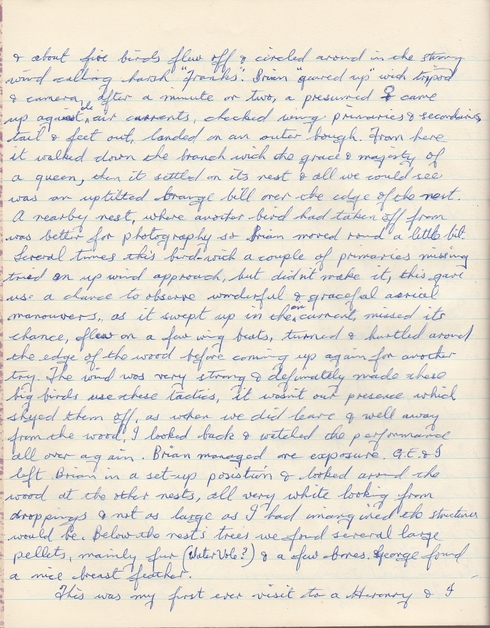 & about five birds flew off & circled around in the strong
wind calling harsh "franks". Brian "geared up" with tripod
& camera, after a minute or two, a presumed ♀ came
up against the air currents, checked wing primaries & secondaries,
tail & feet out, landed on an outer bough. From here
it walked down the branch with the grace & majesty of
a queen, then it settled on its nest & all we could see
was an uptilted orange bill over the edge of the nest.
A nearby nest, where another bird had taken off from
was better for photography so Brian moved round a little bit.
Several times this bird with a couple of primaries missing
tried an up wind approach, but didn't make it, this gave
use a chance to observe wonderful & graceful aerial
manouvers, as it swept up in the air currents, missed its
chance, flew on a few wing beats, turned & hurtled around
the edge of the wood before coming up again for another
try. The wind was very strong & definately made these
big birds use these tactics, it wasn't our presence which
shyed them off, as when we did leave & well away
from the wood, I looked back & watched the performance
all over again. Brian managed one exposure. G.E. & I
left Brian in a set-up position & looked around the
wood at the other nests, all very white looking from
droppings & not as large as I had imangined the structures
would be. Below the nest's trees we found several large
pellets, mainly fur (Water Vole?) & a few bones. George found
a nice breast feather.
This was my first ever visit to a Heronry & I